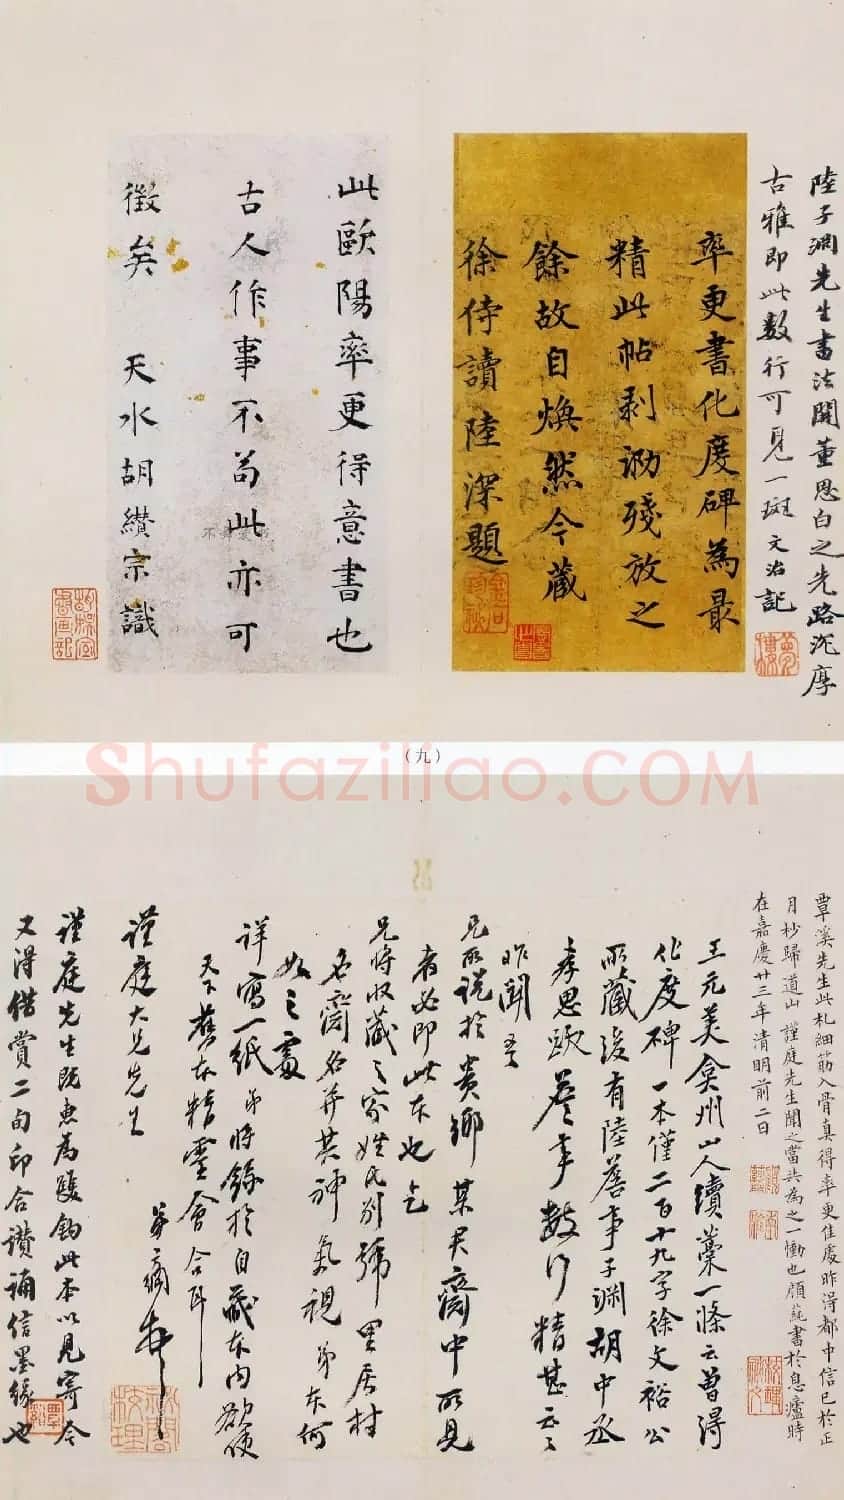 陸子淵先生書法開董思白之先路沉厚
古雅即此數行可見一斑 文治記
率更書化度碑為最
精此帖剥泐殘放之
餘故自煥然今藏
徐侍讀陸深題
此歐陽率更得意書也
古人作事不苟此亦可
徵矣 天水胡纘宗識
（九）
Shufaziliao.COM
覃溪先生此札細筋入骨真得率更佳處昨得都中信已於正
月杪歸道山 謹庭先生聞之當共為之一慟也 顧蒓書於息廬時
在嘉慶廿三年清明前二日
王元美弇州山人續藁一條云曾得
化度碑一本僅二百十九字徐文裕公
所藏後有陸詹事子淵胡中丞
孝思歐詹事數行精甚云云
昨聞
兄所說於貴鄉某君齋中所見
者必即此本也乞
兄將收藏之家姓氏別號里居村
名齋名并其神氣視弟本何
如之處
詳寫一紙弟將錄於自藏本內欲使
天下舊本精靈會合耳
謹庭大兄先生 弟方綱
謹庭先生既惠為雙鉤此本以見寄今
又得借賞二句印合讚誦信墨緣也